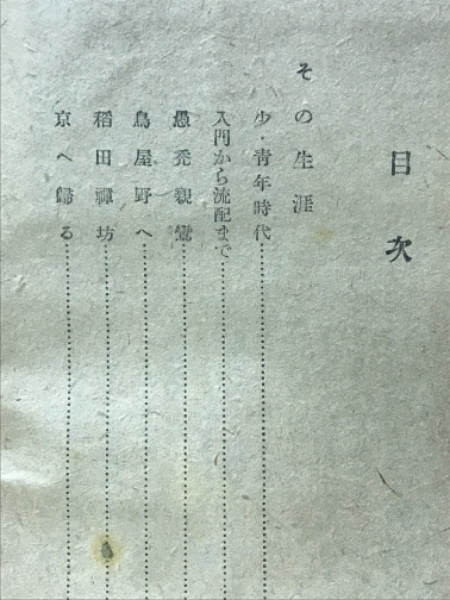 目次
その生涯
少・青年時代
入門から流配まで
愚禿親鸞
鳥屋野へ
稻田禪坊
京へ歸る